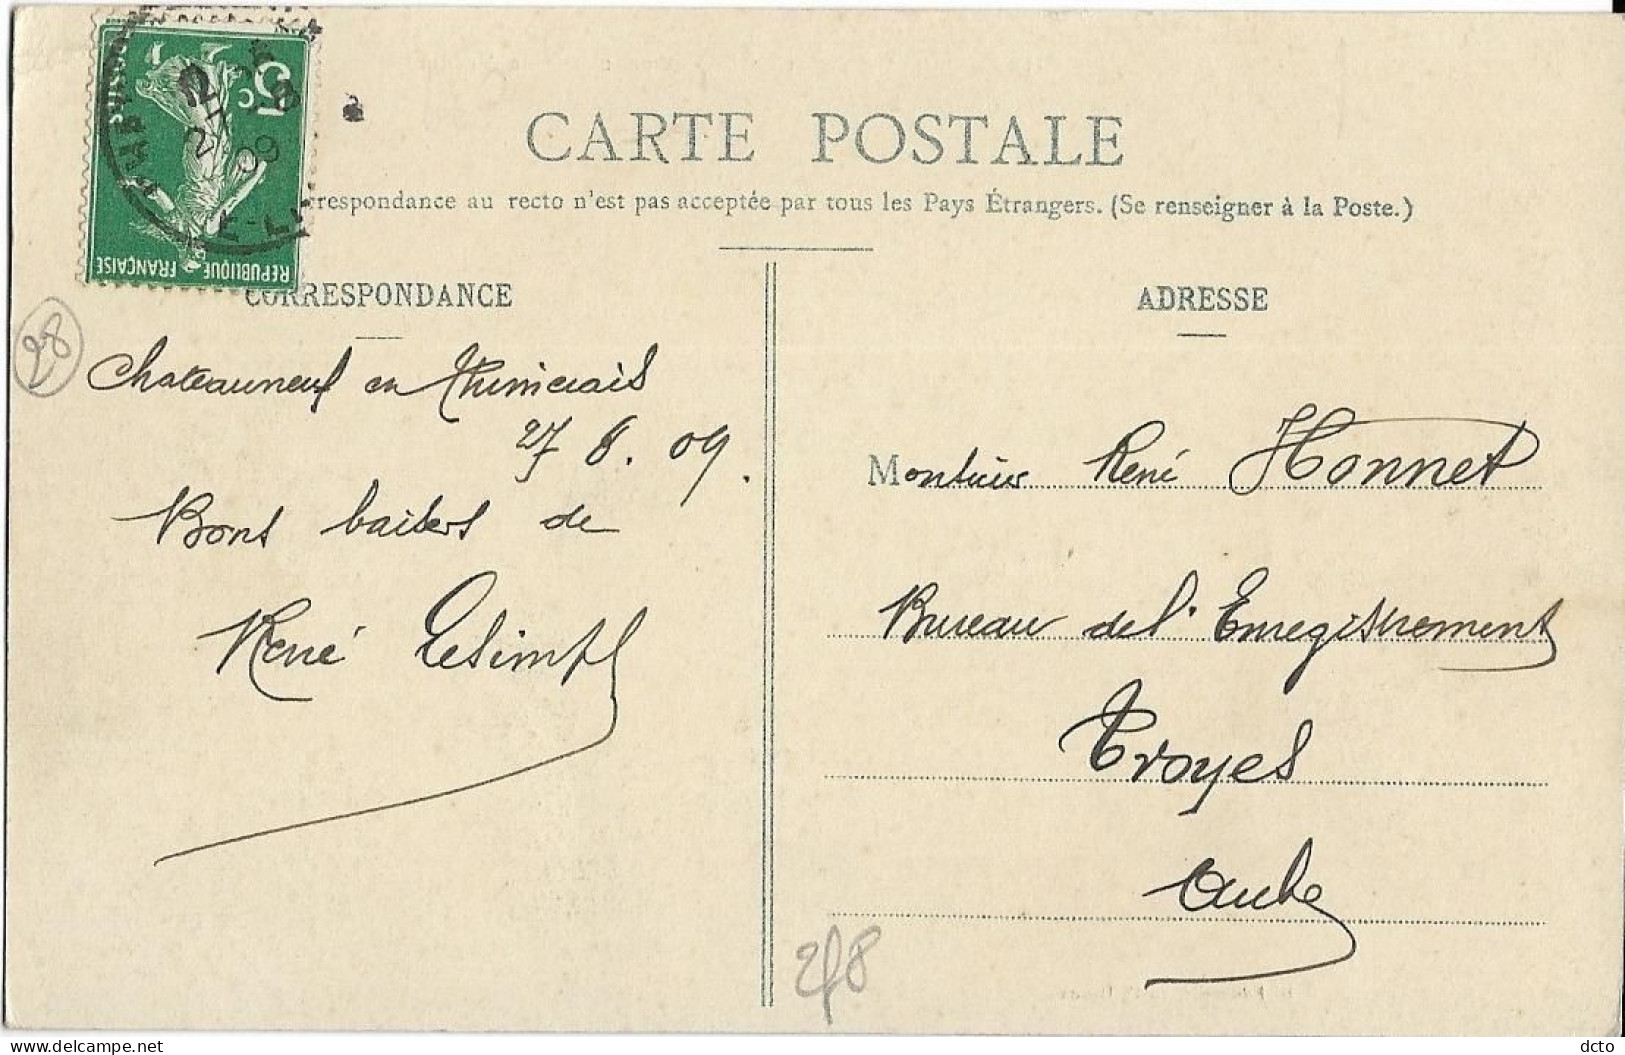 CARTE POSTALE
respondance au recto n'est pas acceptée par tous les Pays Étrangers. (Se renseigner à la Poste.)
CORRESPONDANCE
ADRESSE
5c
12
27 8
09
REPUBLIQUE FRANÇAISE
28
Chateauneuf en Thimerais
27 8. 09.
Bons baisers de
René
Monsieur René Honnet
Bureau de l'Enregistrement
Troyes
Aube
2f8
delcampe.net
dcto